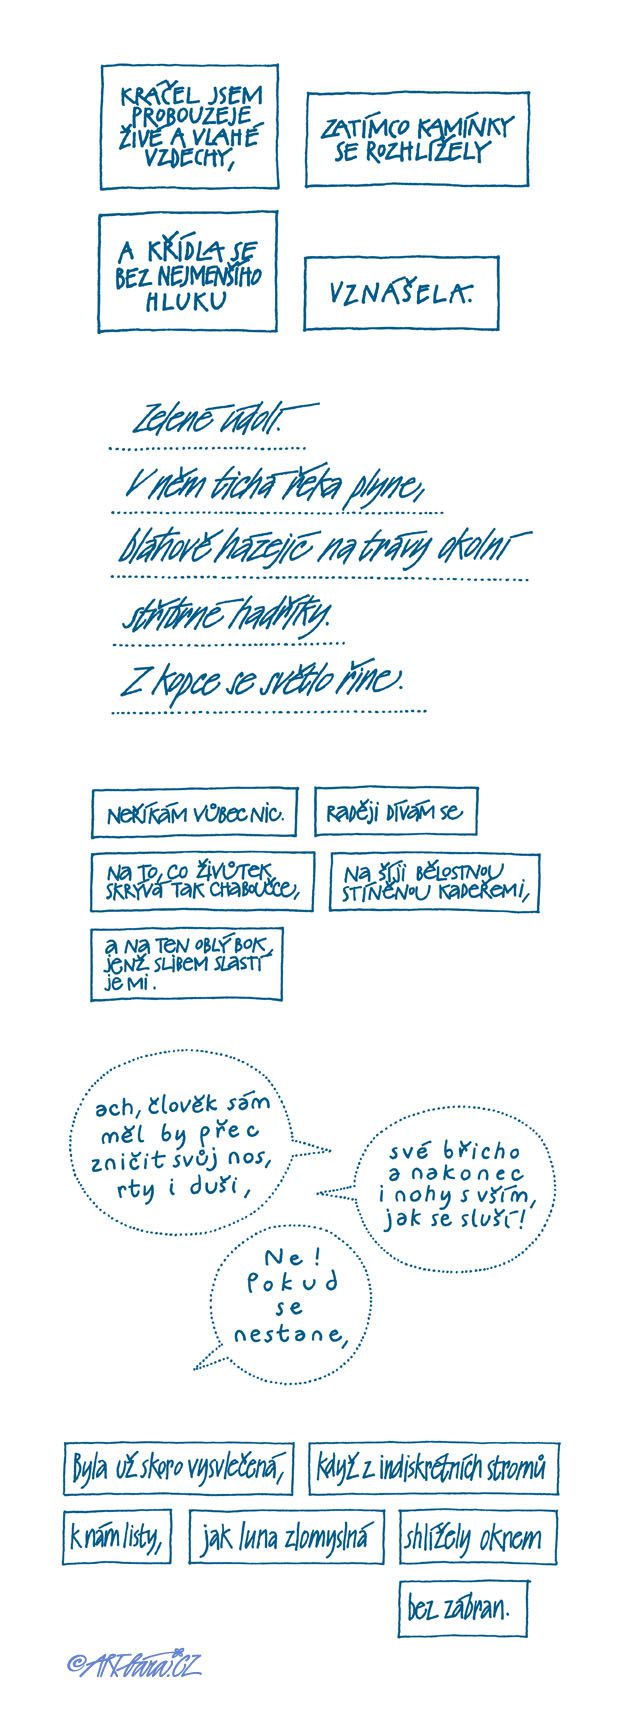 KRÁČEL JSEM
PROBOUZEJE
ŽIVÉ A VLAHÉ
VZDECHY,
ZATÍMCO KAMÍNKY
SE ROZHLÍŽELY
A KŘÍDLA SE
BEZ NEJMENŠÍHO
HLUKU
VZNÁŠELA.
Zelené údolí.
V něm tichá řeka plyne,
bláhově házejíc na trávy okolní
stříbrné hadříky.
Z kopce se světlo řine.
Neříkám vůbec nic.
Raději dívám se
Na to, co živůtek
skrývá tak chaboučce,
Na šíji bělostnou
stíněnou kadeřemi,
a na ten oblý bok,
jenž slibem slastí
je mi.
ach, člověk sám
měl by přec
zničit svůj nos,
rty i duši,
své břicho
a nakonec
i nohy s vším,
jak se sluší!
Ne!
Pokud
se
nestane,
Byla už skoro vysvlečená,
když z indiskrétních stromů
k nám listy,
jak luna zlomyslná
shlížely oknem
bez zábran.
©ARTbára.CZ